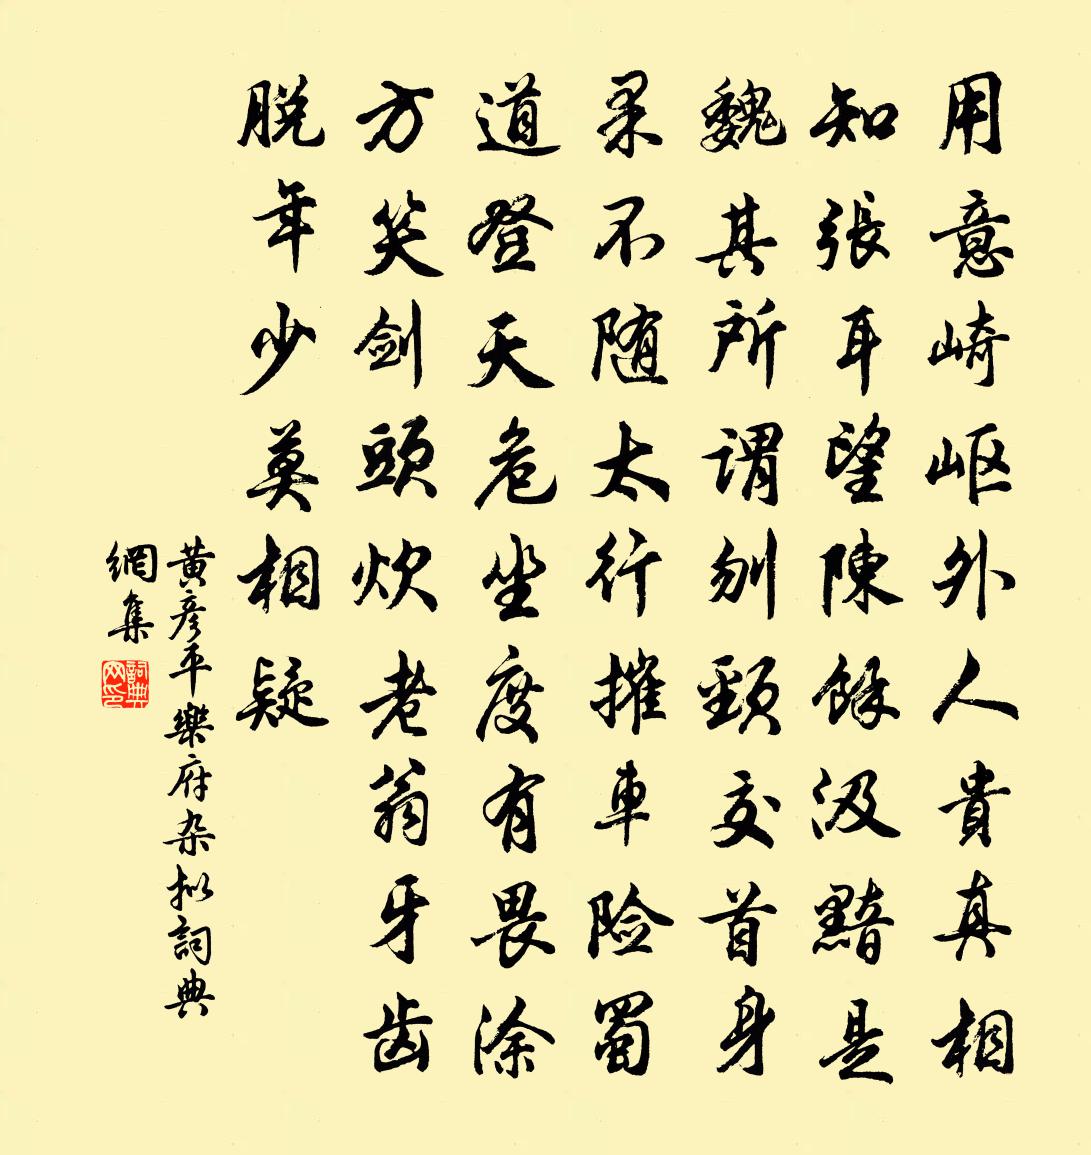 用意崎岖外人貴真相
知張耳望陳餘汲黯是
魏其所謂刎頸交首身
果不随太行摧車险蜀
道登天危坐度有畏涂
方笑剑頭炊老翁牙齿
脱年少莫相疑
黄彦平樂府杂拟詞典
網集
詞典
网印